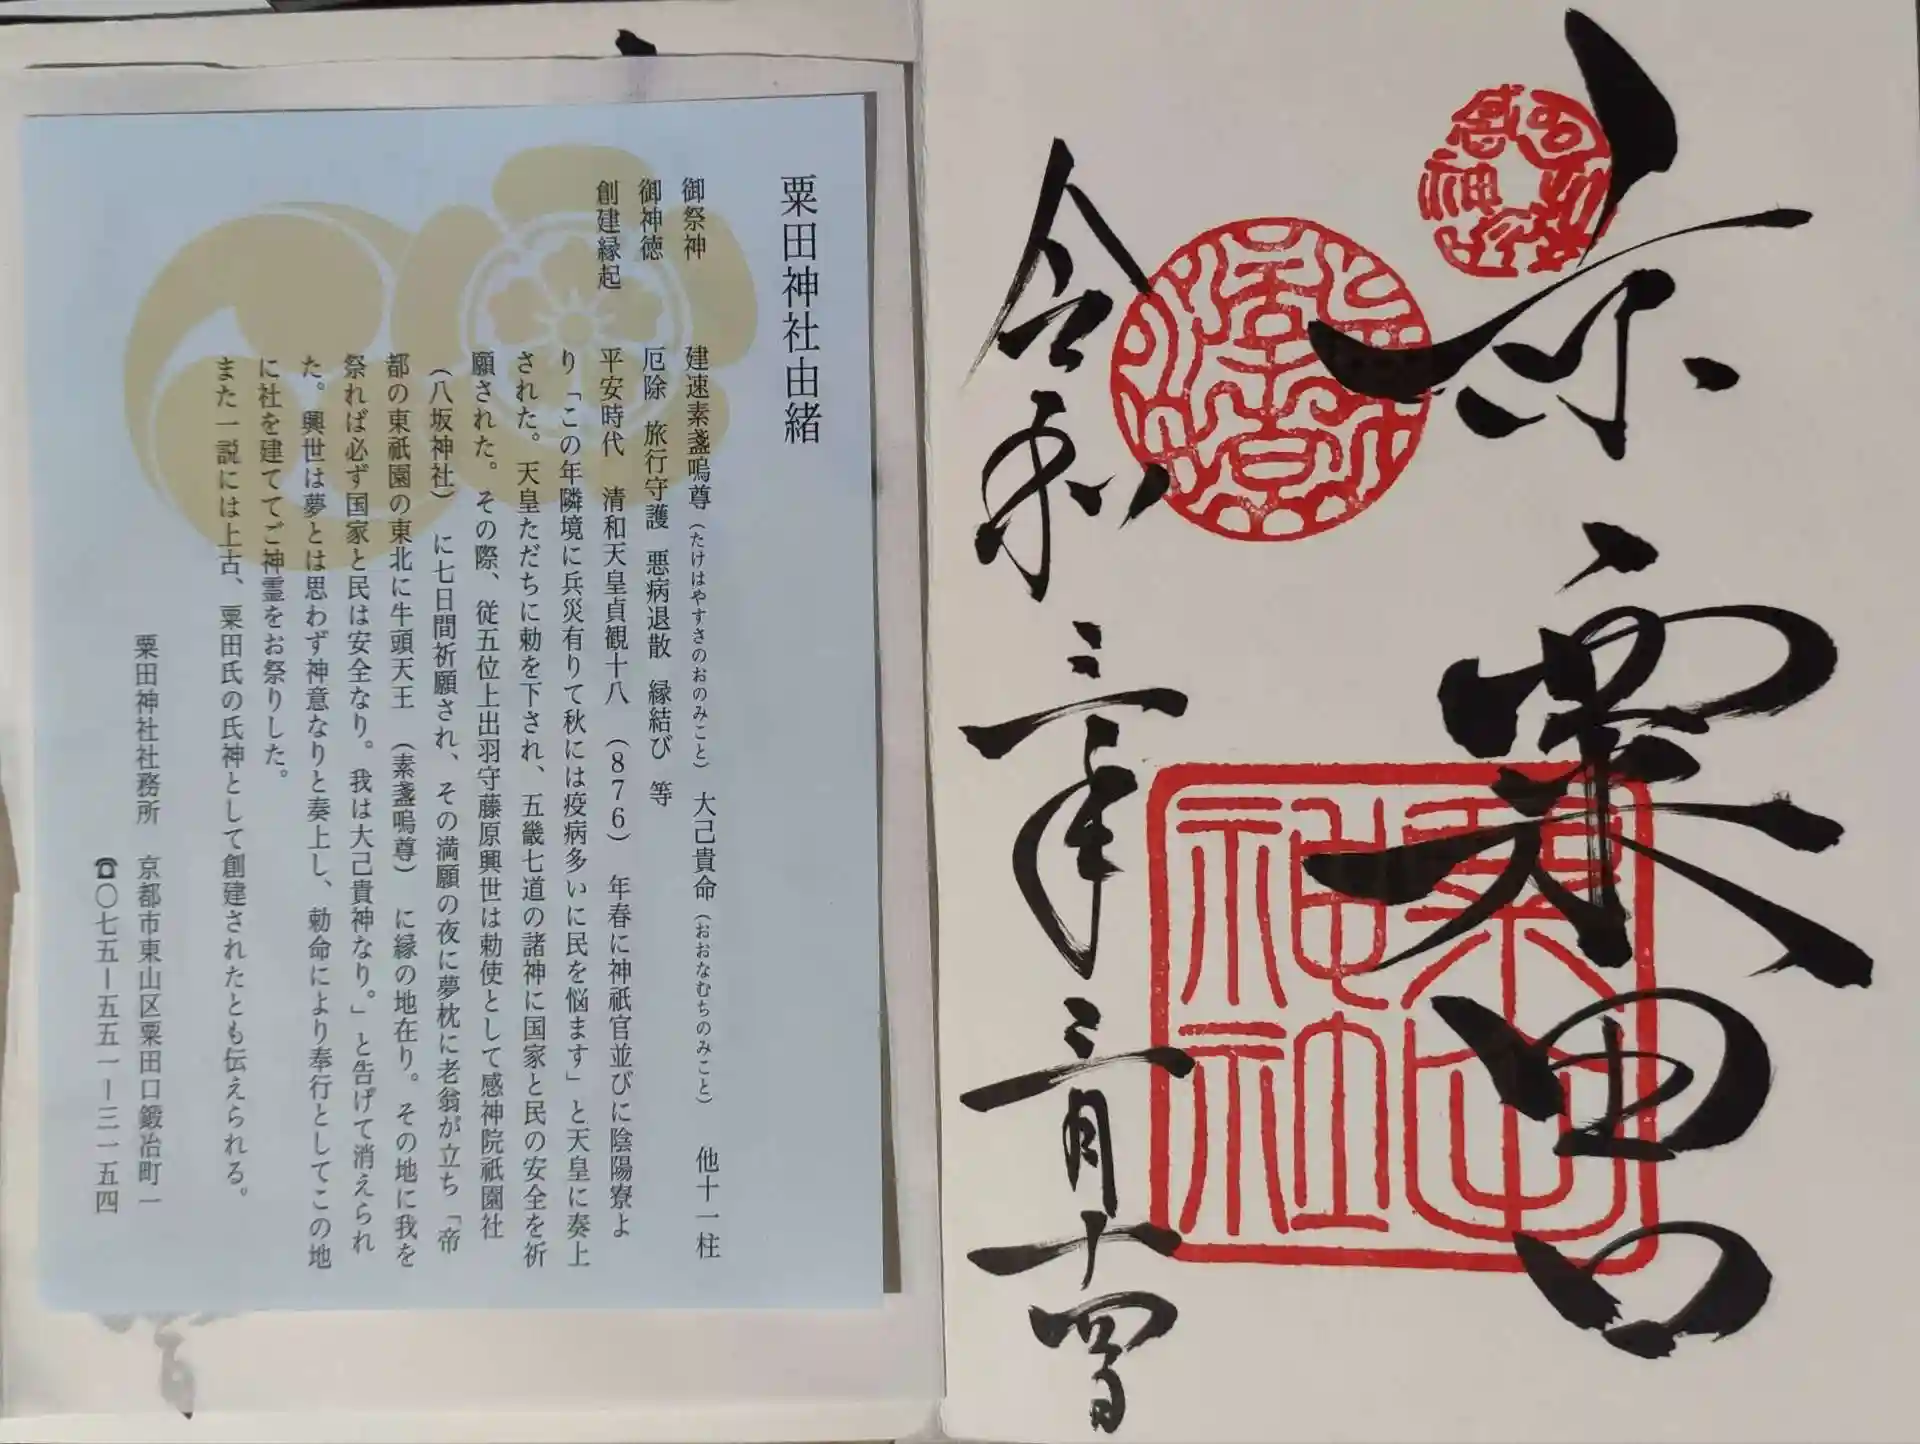 京
粟田口
令和三年三月十四日
粟田神社
粟田神社由緒
御祭神　建速素盞嗚尊（たけはやすさのおのみこと）　大己貴命（おおなむちのみこと）　他十一柱
御神徳　厄除　旅行守護　悪病退散　縁結び　等
創建縁起　平安時代　清和天皇貞観十八（８７６）年春に神祇官並びに陰陽寮よ
り「この年隣境に兵災有りて秋には疫病多いに民を悩ます」と天皇に奏上
された。天皇ただちに勅を下され、五畿七道の諸神に国家と民の安全を祈
願された。その際、従五位上出羽守藤原興世は勅使として感神院祇園社
（八坂神社）に七日間祈願され、その満願の夜に夢枕に老翁が立ち「帝
都の東祇園の東北に牛頭天王（素盞嗚尊）に縁の地在り。その地に我を
祭れば必ず国家と民は安全なり。我は大己貴神なり。」と告げて消えられ
た。興世は夢とは思わず神意なりと奏上し、勅命により奉行としてこの地
に社を建ててご神霊をお祭りした。
また一説には上古、粟田氏の氏神として創建されたとも伝えられる。
粟田神社社務所　京都市東山区粟田口鍛冶町一
☎〇七五ー五五一ー三一五四